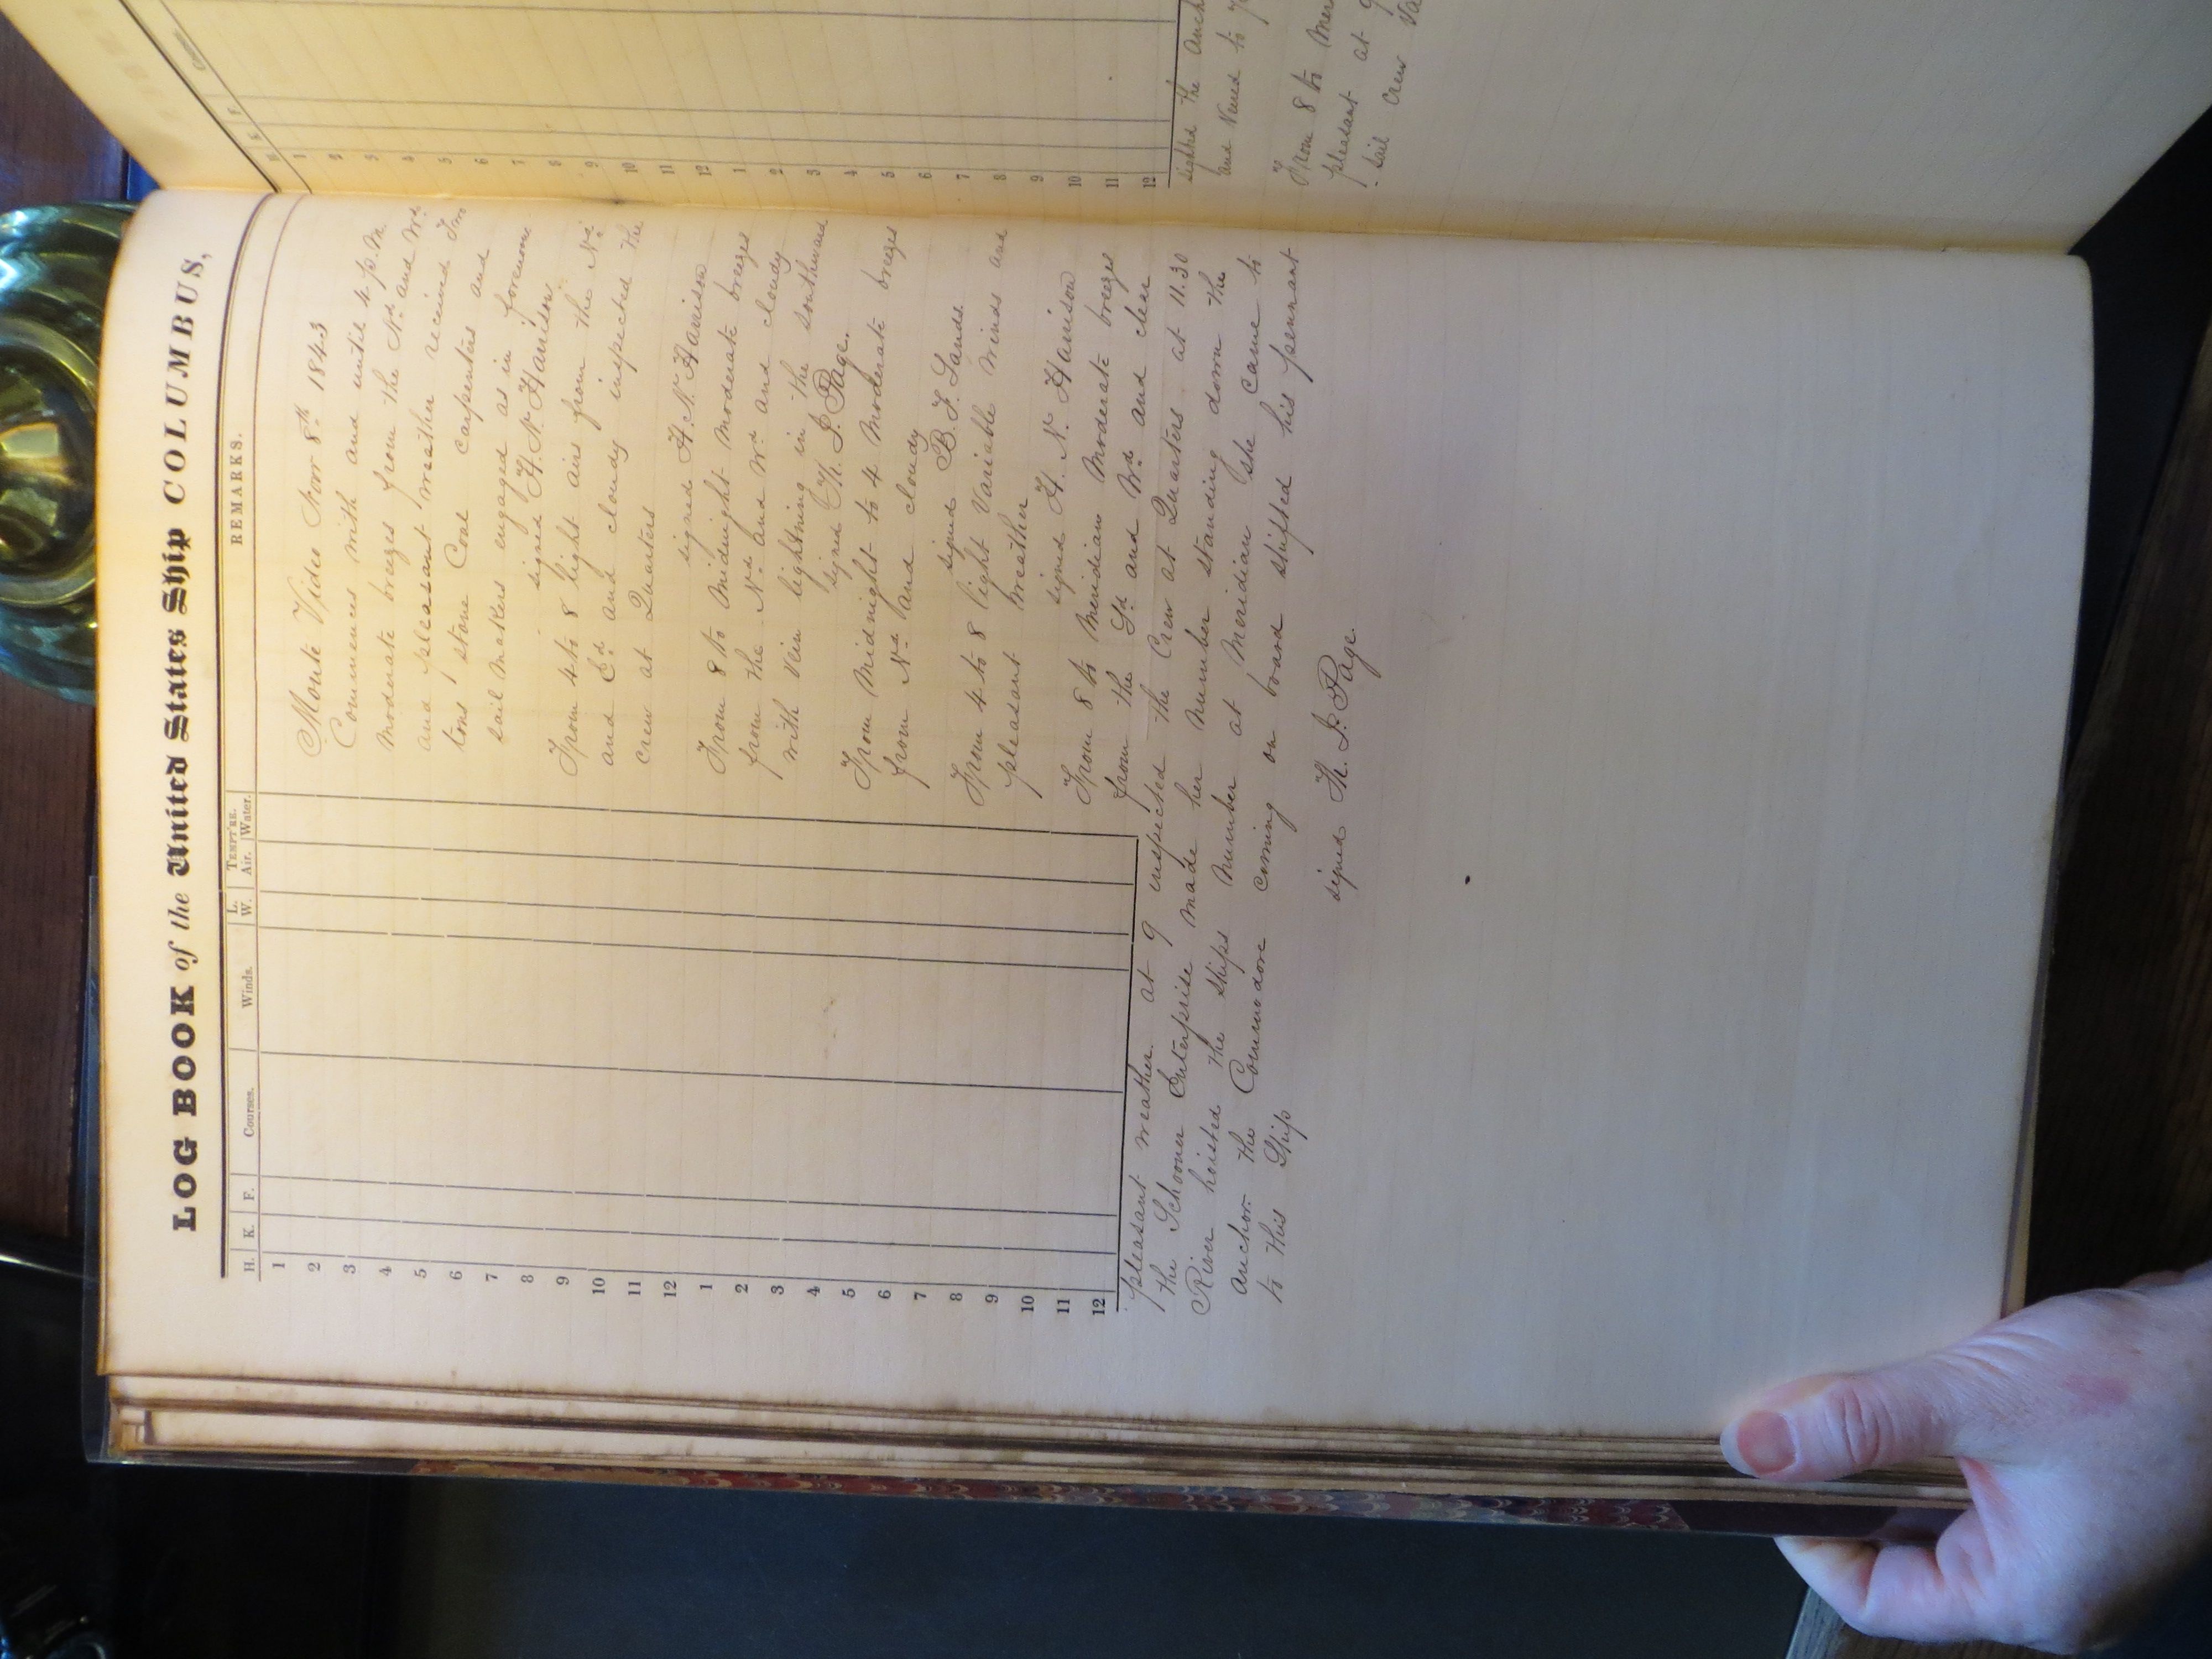 LOG BOOK of the United States Ship COLUMBUS,
H. K. F. Courses. Winds. L. W. TEMPT'RE. Air. Water. REMARKS.
1
2
3
4
5
6
7
8
9
10
11
12
1
2
3
4
5
6
7
8
9
10
11
12
Monte Video Novr 8th 1843
Commences with and until 4 p.m.
moderate breezes from the Nd and Wd
and pleasant weather received
tons stone Coal carpenters and
sail makers engaged as in forenoon.
signed H. N. Harrison
From 4 to 8 light airs from the Nd
and Ed and cloudy inspected the
crew at Quarters
signed H. N. Harrison
From 8 to Midnight moderate breezes
from the Nd and Wd and cloudy
with vein lightning in the Southward
signed Th. J. Page.
From Midnight to 4 Moderate breezes
from Nd and cloudy
signed B. F. Sands.
From 4 to 8 light Variable Winds and
pleasant Weather
signed H. N. Harrison
From 8 to Meridian Moderate breezes
from the Sd and Wd and clear
pleasant weather. at 9 inspected the Crew at Quarters at 11.30
the Schooner Enterprise made her number standing down the
River hoisted the Ships Number at Meridian she came to
anchor. the Commodore coming on board shifted his pennant
to this Ship
signed Th. J. Page.
H K F
1
2
3
4
5
6
7
8
9
10
11
12
1
2
3
4
5
6
7
8
9
10
11
12
sighted the Anch
and Veered to
From 8 to Mer
pleasant at 9
- sail crew